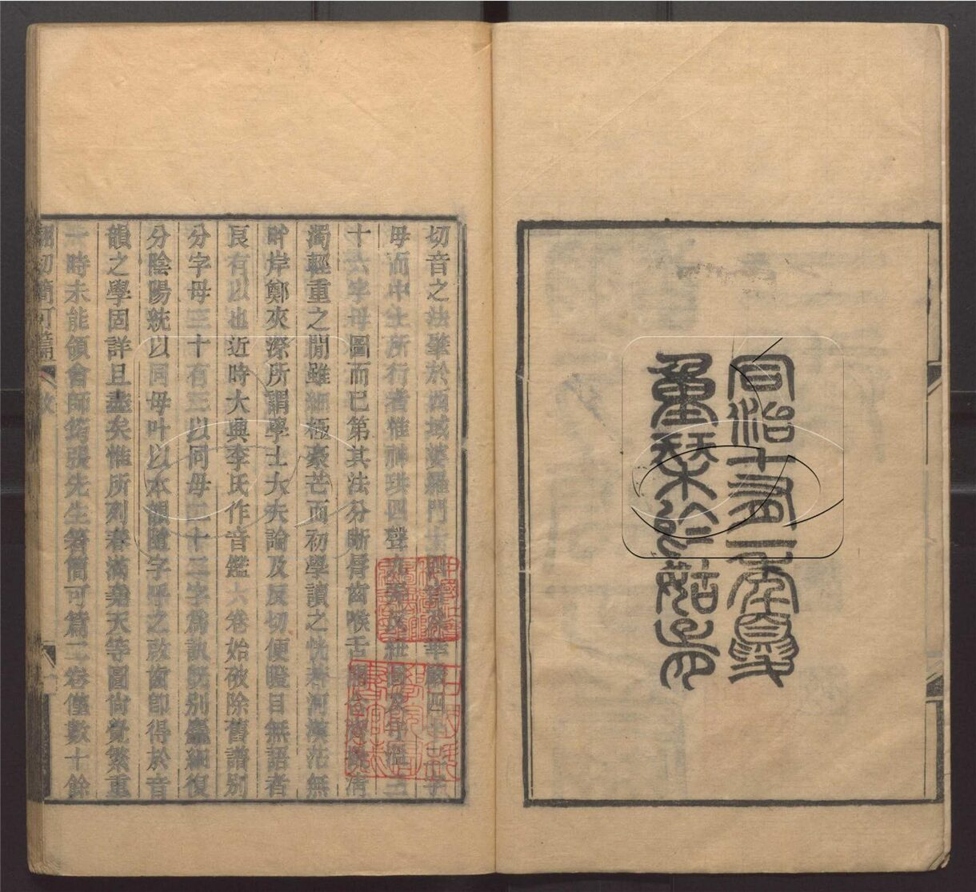 同治十有一年夏
重栞於姑
切音之法肇於西域婆羅門十四音
母而中土所行者惟神珙四聲九弄反紐圖及
十六字母圖而已第其法分晰脣齒喉舌清
濁輕重之閒雖細極豪芒而初學讀之恍若河漢茫無
畔岸鄭夾漈所謂學士大夫論及反切便瞪目無語者
良有以也近時大興李氏作音鑑六卷始破除舊譜別
分字母三十有三以同母二十二字為訣既別麤細復
分陰陽統以同母叶以本韻隨字呼之啟齒即得於音
韻之學固詳且盡矣惟所列春滿堯天等圖尙覺繁重
一時未能領會師筠張先生箸簡可篇二卷僅數十餘
翻切簡可篇 敘